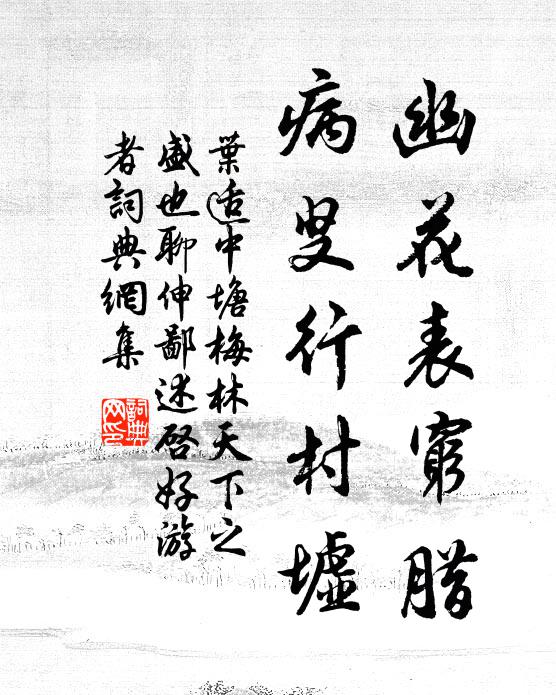 幽花表窮腊
病叟行村墟
葉适中塘梅林天下之
盛也聊伸鄙述啓好游
者詞典網集
詞典網印